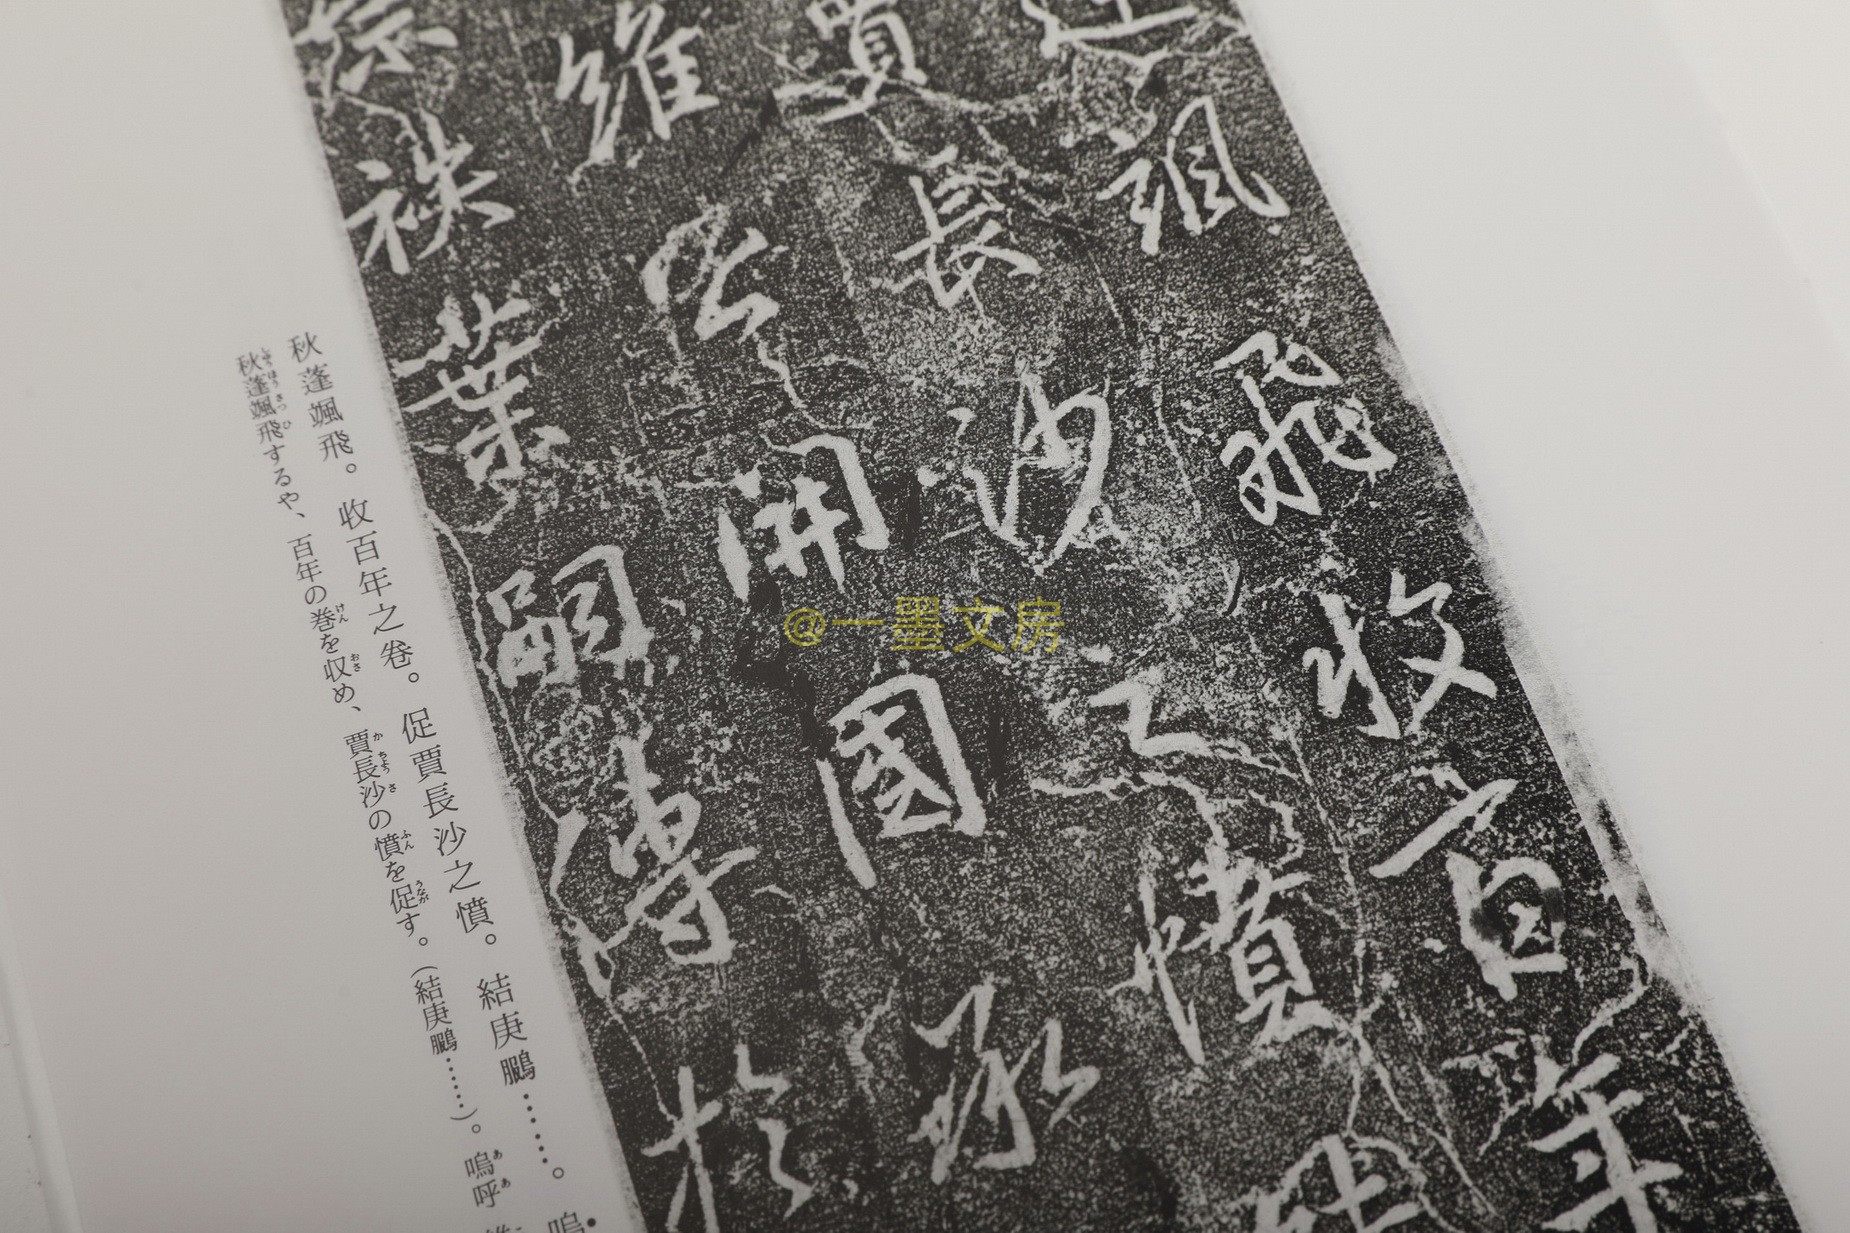 颯飛收百年
賈長沙之憤
維公開國承
葉嗣傳於
秋蓬颯飛。收百年之卷。促賈長沙之憤。結庚鵬……。嗚
秋蓬颯飛するや、百年の巻を収め、賈長沙の憤を促す。（結庚鵬……）。嗚呼
@一墨文房